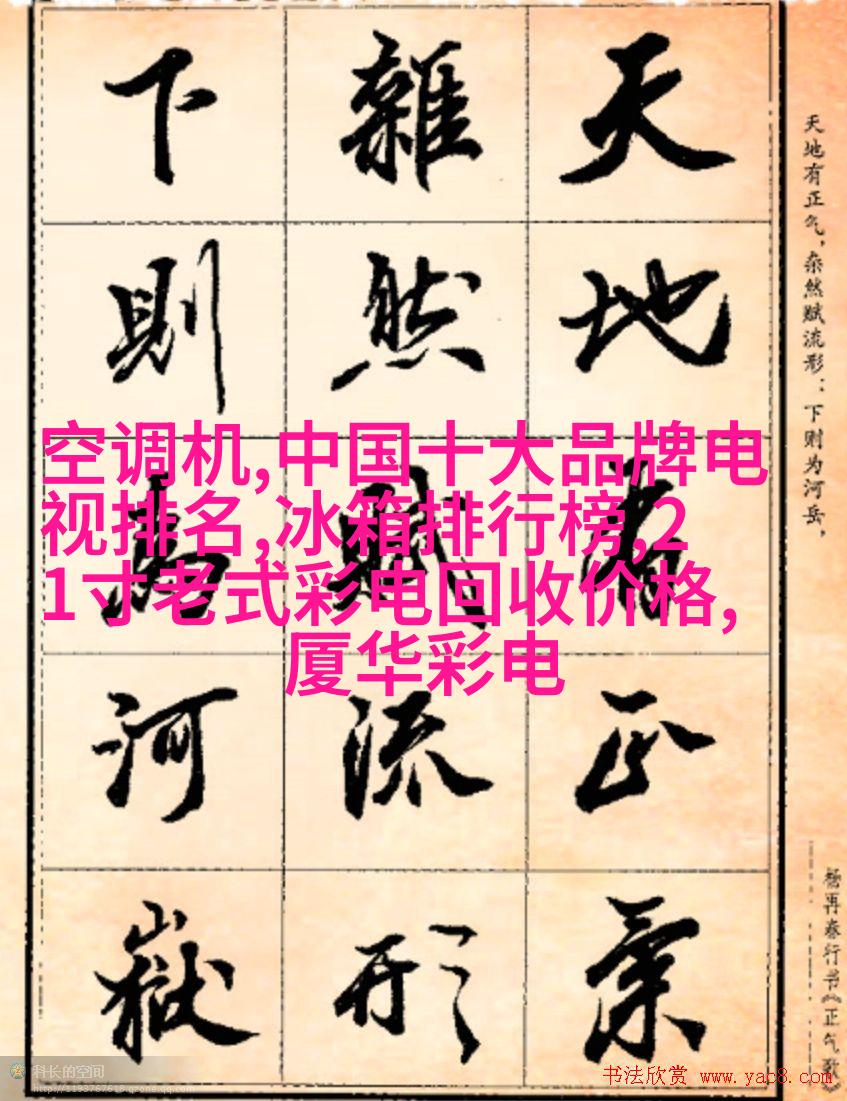 天地有正氣
雜然賦流形
下則為河嶽
天地有正气，杂然赋流形：下则为河岳，
杨再春行书《正气歌》
空调机,中国十大品牌电
视排名,冰箱排行榜,2
1寸老式彩电回收价格,
厦华彩电
科长的空间
http://1193767618.qzone.qq.com
书法欣赏 www.yac8.com